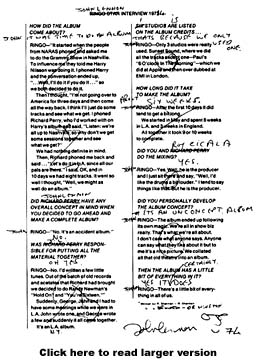 JOHN LENNON
RINGO STARR INTERVIEW 1973/4
HOW DID THE ALBUM
COME ABOUT?
IT WAS TIME TO DO AN ALBUM
RINGO—"It started when the people
from NARAS phoned and asked me
to do the Grammy Show in Nashville.
To influence me they told me Harry
Nilsson was doing it. I phoned Harry
and the conversation ended up,
"...Well, I'll do it if you do it...",
so we both decided to do it.
Then I thought, I'm not going over to
America for three days and then come
all the way back. I think I'll just do some
tracks and see what I get. I phoned
Richard Perry, who I'd worked with on
Harry's album and said, I'm
up to Nashville, so why don't we get
some sessions together and see
what we get?"
We had nothing definite in mind.
Then, Richard phoned me back and
said
pals are there." I said, OK, and in
10 days we had eight tracks. It went so
well I thought, "Well, we might as
well do an album."
JOHN
DID RICHARD PERRY HAVE ANY
OVERALL CONCEPT IN MIND WHEN
YOU DECIDED TO GO AHEAD AND
MAKE A COMPLETE ALBUM?
RINGO—"No. It's an accidental album."
NO.
WAS RICHARD PERRY RESPON-
SIBLE FOR PUTTING ALL THE
MATERIAL TOGETHER?
OH YES.
RINGO—No. I'd written a few little
tunes. Out of the batch of old records
and acetates that Richard had brought
we decided to do Randy Newman's
"Hold On" and "You're Sixteen."
Suddenly, George, John and I had to
have some meetings while we were in
L.A. John wrote one, and George wrote
a few and suddenly it all came together.
It's an L.A. album.
N.Y.
IS
STUDIOS ARE LISTED
ON THE ALBUM CREDITS...
THATS BECAUSE WE ONLY
USED ONE.
RINGO—Only 3 studios were really
used. Sunset Sound, where we did
all the tracks except one—Paul's
"6 O'clock in The morning"—which we
did at Apple and then over dubbed and
EMI in London.
HOW LONG DID IT TAKE
TO MAKE THE ALBUM?
SIX WEEKS.
RINGO—After the first 10 days it did
tend to get a bit long.
We started in July and spent 8 weeks
in L.A. and 2 weeks in England.
As together it took 9 or 10 weeks
to complete.
ROY CICALA
DID YOU AND RICHARD PERRY
DO THE MIXING?
YES.
RINGO—Yes. Well, he is the producer
and I just sit there and say, "Well, I'd
like the drums a bit louder." I tend to say
things like that but he is the producer.
DID YOU PERSONALLY DEVELOP
THE ALBUM CONCEPT?
ITS AN UNCONCEPT ALBUM
RINGO—The album ended up following
its own magic. We're all in show biz
really. That's what we're all about.
I don't care what anyone says. Anyone
can say what they like about it but to
me it's a nice picture. We collated
all that old theatre into an album.
THEN THE ALBUM HAS A LITTLE
BIT OF EVERYTHING IN IT?
YES IT DOES
RINGO—There's a little bit of every-
thing in all of us.
John Lennon 74
Click here to read larger version